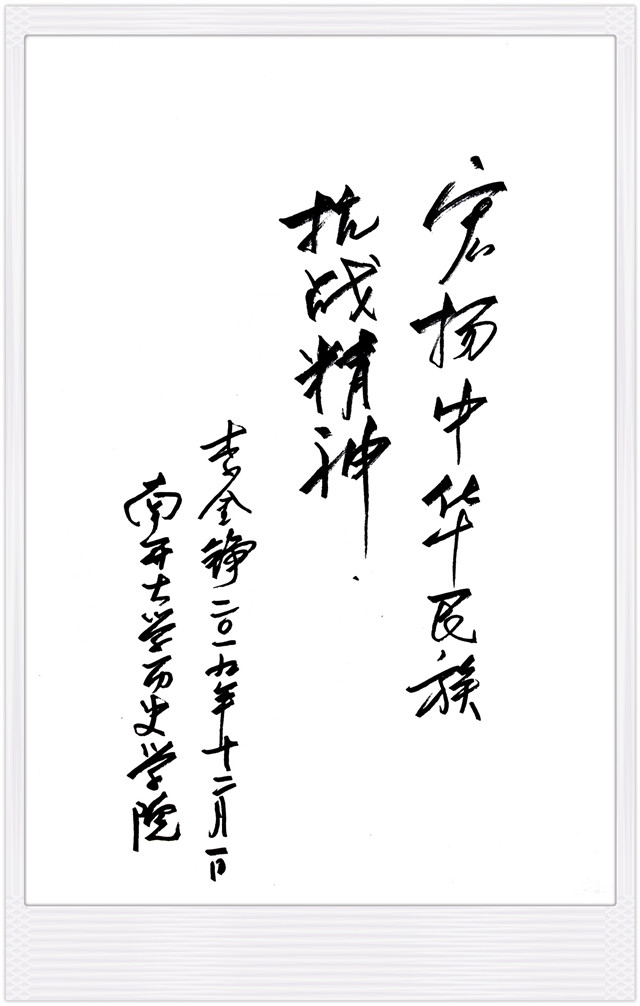 宏扬中华民族
抗战精神
李金铮二〇一九年十二月一日
南开大学历史学院